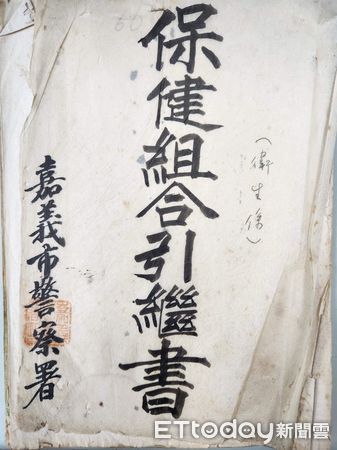 （衛生係）
保健組合引繼書
嘉義市警察署
ETtoday新聞雲